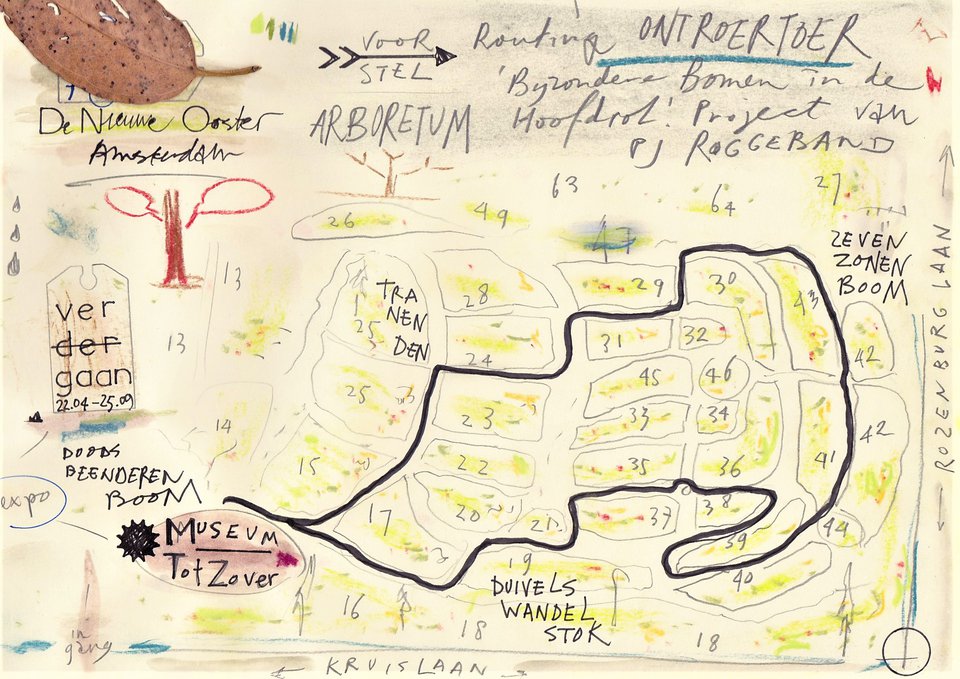 VOOR
STEL
Routing ONTROERTOER
'Byzondere Bomen in de
Hoofdrol'. Project van
PJ ROGGEBAND
De Nieuwe Ooster
Amsterdam
ARBORETUM
63
64
27
49
26
47
13
13
14
15
ver
der
gaan
22.04-25.09
TRA
NEN
DEN
1
25
25
28
29
30
43
ZEVEN
ZONEN
BOOM
42
42
31
32
24
45
46
23
33
34
22
35
36
41
DOODS
BEENDEREN
BOOM
expo
MUSEUM
Tot Zover
17
20
21
37
38
39
44
40
19
DUIVELS
WANDEL
STOK
16
18
18
in
gang
← KRUISLAAN →
← ROZENBURG LAAN →